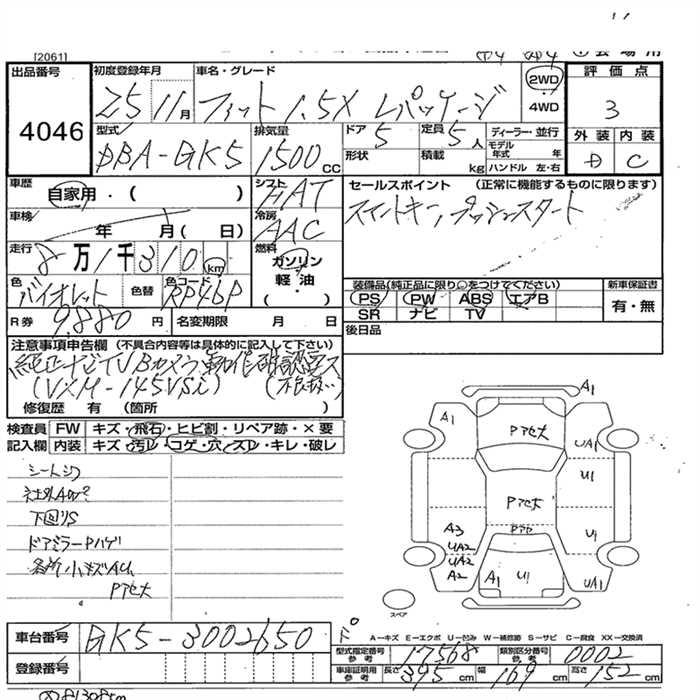 [2061]
出品番号
4046
初度登録年月
25 11月
車名・グレード
フィット 1.5X Lパッケージ
2WD
4WD
評価点
3
外装 内装
D C
型式
DBA-GK5
排気量
1500cc
ドア 5
定員 5人
形状
積載 kg
ディーラー・並行
モデル年式 年
ハンドル 左・右
車歴
自家用・( )
シフト
FAT
セールスポイント (正常に機能するものに限ります)
スマートキー、プッシュスタート
車検
年 月( 日)
冷房
AAC
走行
8万1千310km
燃料
ガソリン
軽油
・( )
色
バイオレット
色替
色コード
RP46P
装備品(純正品に限り○をつけてください)
PS PW ABS エアB
SR ナビ TV
新車保証書
有・無
R券 9,880円
名変期限 月 日
後日品
注意事項申告欄 (不具合内容等は具体的に記入して下さい)
純正ナビTVBカメラ動作確認済ス
(VXM-145VSi)
修復歴 有 (箇所 )
検査員記入欄
FW キズ・飛石・ヒビ割・リペア跡・×要
内装 キズ・汚レ・コゲ・穴・スレ・キレ・破レ
シートシワ
社外AW
下回りS
ドアミラーPハゲ
各所小キズAU
Pアセ大
A1
A1 Pアセ大 UA1
U1
Pアセ大
Pアセ
A3 U1
UA2
UA2
A2 A1 U1 UA1
スペア
車台番号 GK5-3002650
登録番号
A−キズ E−エクボ U−凹み W−補修跡 S−サビ C−腐食 XX−交換済
型式指定番号 参考 17568
類別区分番号 参考 0002
車庫証明用 参考 長さ 395cm 幅 169cm 高さ 152cm